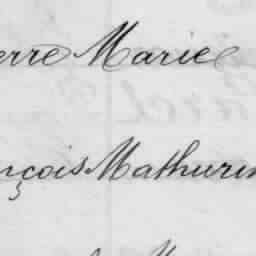 erre Marie
nçois Mathurin